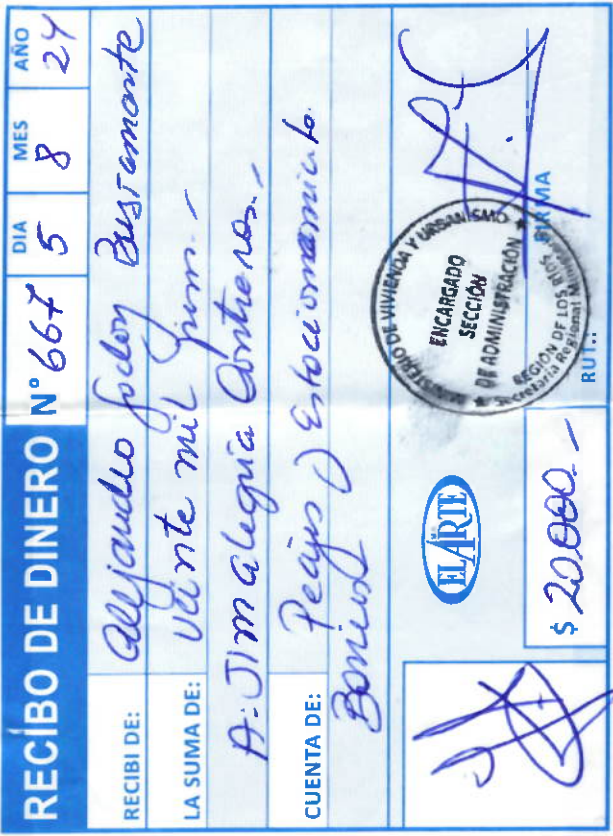 RECIBO DE DINERO N° 667 DIA 5 MES 8 AÑO 24
RECIBI DE: Alejandro Godoy Bustamante
LA SUMA DE: Veinte mil
A: Jim Alegria Contreras.-
CUENTA DE: Peajes y Estacionamiento.
EL ARTE
$ 20.000.-
MINISTERIO DE VIVIENDA Y URBANISMO
ENCARGADO
SECCIÓN
DE ADMINISTRACIÓN
REGIÓN DE LOS RIOS
Secretaria Regional
FIRMA
RUT.: